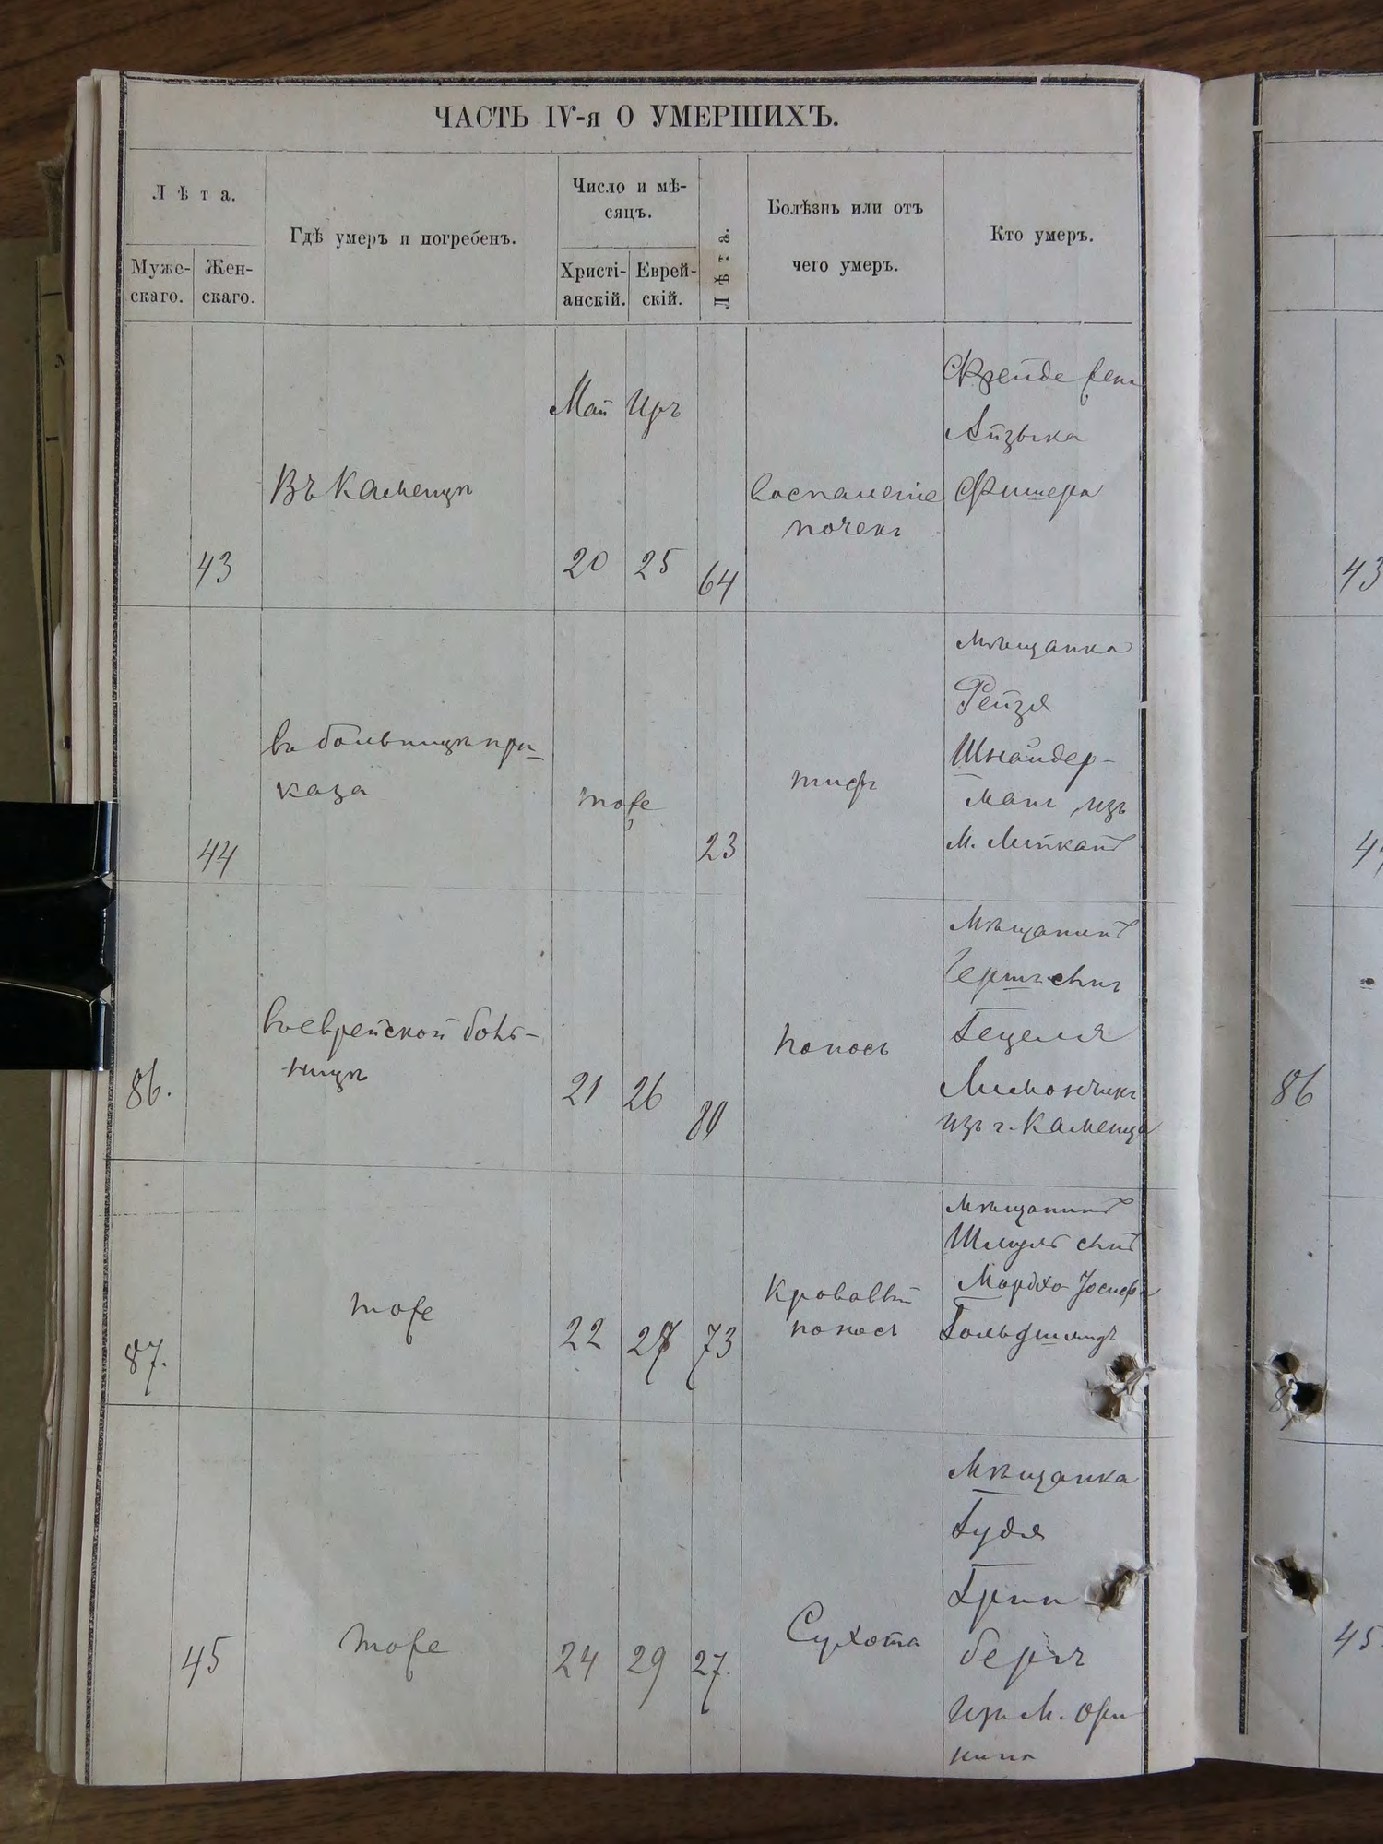 ЧАСТЬ IV-я О УМЕРШИХЪ.
Лѣта.
Муже-
скаго.
Жен-
скаго.
Гдѣ умеръ и погребенъ.
Число и мѣ-
сяцъ.
Христі-
анскій.
Еврей-
скій.
Лѣта.
Болѣзнь или отъ
чего умеръ.
Кто умеръ.
43
Въ Каменцѣ
Май Иръ
20 25
64
воспаленіе
почекъ
Фрейде жена
Айзыка
Фишера
43
44
въ больницѣ при-
каза
тоже
23
тифъ
Мѣщанка
Рейзя
Шнайдер-
манъ изъ
м.
86.
въ еврейской боль-
ницѣ
21 26
80
поносъ
Мѣщанинъ
Гершъ сынъ
Гецеля
Лимончикъ
изъ г. Каменца
86
87.
тоже
22 27
73
Кровавый
поносъ
Мѣщанинъ
Шмуль сынъ
Мордхо Іосифа
Гольдшмидъ
45
тоже
24 29
27.
Сухота
Мѣщанка
Гудя
Грин-
бергъ
изъ м. Ори
нина
45